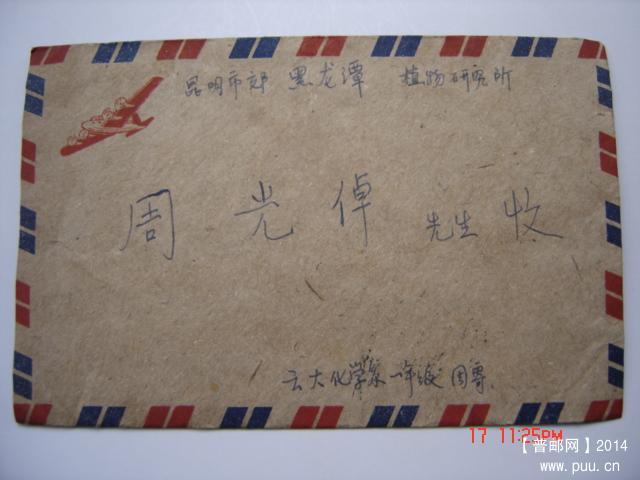 昆明市郊 黑龙潭 植物研究所
周光倬 先生 收
云大化学系一年级 周
17 11:25PM
【普邮网】2014
www.puu.cn